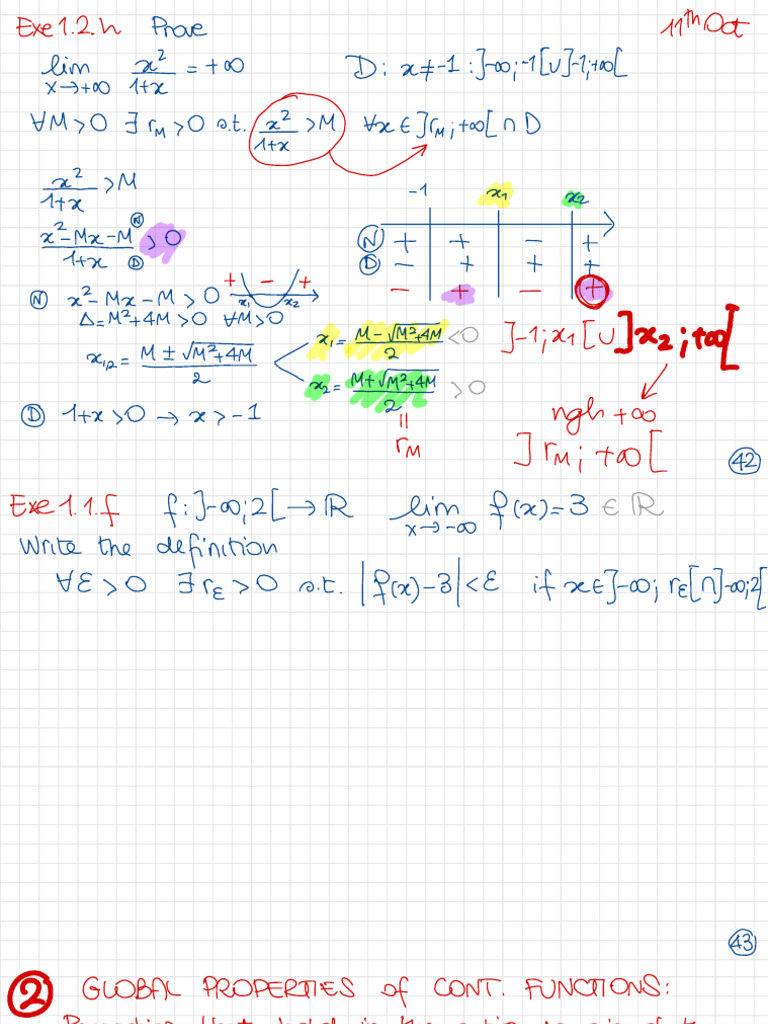 Exe 1.2.h Prove 11th Oct
lim x→+∞ x²/(1+x) = +∞ D: x≠-1 : ]-∞;-1[∪]-1;+∞[
∀M>0 ∃ r_M>0 s.t. x²/(1+x) >M ∀x∈]r_M;+∞[∩D
x²/(1+x) >M
-1 x₁ x₂
(x²-Mx-M)/(1+x) >0 N D
N + + - +
D - + + +
- + - +
N x²-Mx-M>0 + - + x₁ x₂
Δ=M²+4M>0 ∀M>0
x₁,₂ = (M±√(M²+4M))/2
x₁ = (M-√(M²+4M))/2 <0
x₂ = (M+√(M²+4M))/2 >0
= r_M
]-1;x₁[∪]x₂;+∞[
ngh +∞
]r_M;+∞[
D 1+x>0 → x>-1
42
Exe 1.1.f f: ]-∞;2[→ℝ lim x→-∞ f(x)=3 ∈ℝ
Write the definition
∀ε>0 ∃ r_ε>0 s.t. |f(x)-3|<ε if x∈]-∞; r_ε[∩]-∞;2[
43
2 GLOBAL PROPERTIES of CONT. FUNCTIONS: